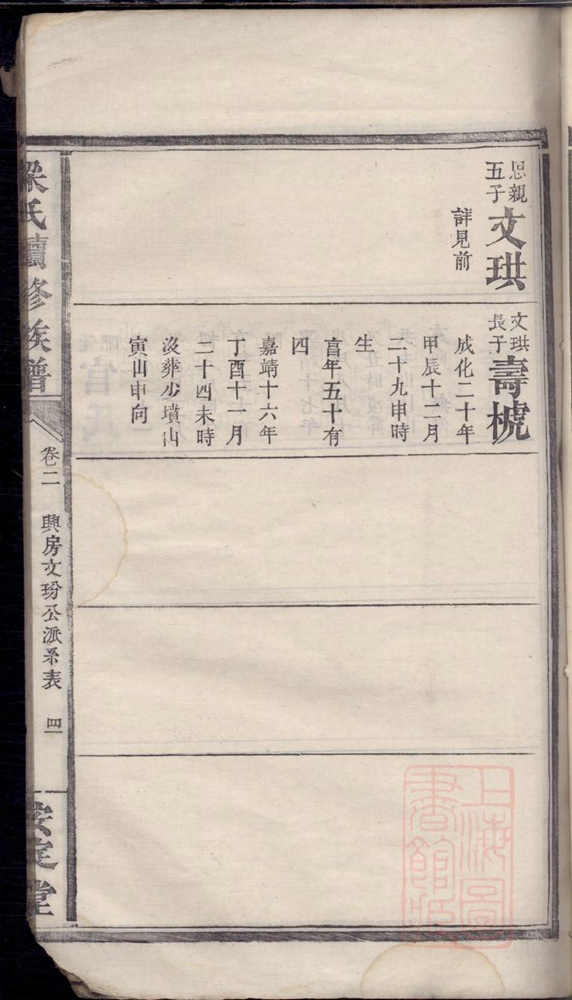 思親
五子
文珙
詳見前
文珙
長子
壽椃
成化二十年
甲辰十二月
二十九申時
生
享年五十有
四
嘉靖十六年
丁酉十一月
二十四未時
沒葬少墳山
寅山申向
梁氏續修族譜
卷二
興房文玢公派系表
四
安定堂
上海圖
書館藏